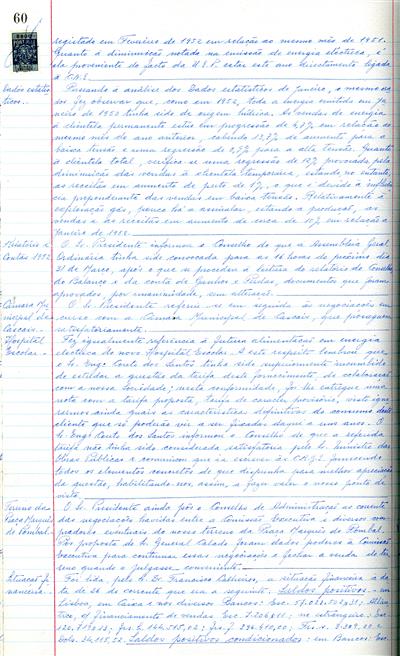 60
registado em Fevereiro de 1952 em relação ao mesmo mês de 1951.
Quanto à diminuição notada na emissão de energia eléctrica, é
ela proveniente do facto da U.E.P. estar este ano directamente ligada
à C.N.E.
Dados estatís-
ticos.
Passando à análise dos Dados estatísticos de Janeiro, o mesmo
dos fez observar que, como em 1952, toda a energia emitida em Ja-
neiro de 1953 tinha sido de origem hídrica. As vendas de energia
à clientela permanente estão em progressão de 4,8% em relação ao
mesmo mês do ano anterior, cabendo 12,7% de aumento para a
baixa tensão e uma regressão de 0,7% para a alta tensão. Quanto
à clientela total, verifica-se uma regressão de 10% provocada pela
diminuição das vendas à clientela temporária, estando, no entanto,
as receitas em aumento de perto de 8%, o que é devido à influên-
cia preponderante das vendas em baixa tensão. Relativamente à
exploração gás, pouco há a assinalar, estando a produção, as
vendas e as receitas em aumento de cerca de 10% em relação a
Janeiro de 1952.
Relatório e
Contas 1952
O Sr. Presidente informou o Conselho de que a Assembleia Geral
Ordinária tinha sido convocada para as 16 horas do próximo dia
31 de Março, após o que se procedeu à leitura do relatório do Conselho,
do Balanço e da conta de Ganhos e Perdas, documentos que foram
aprovados, por unanimidade, sem alteração.
Câmara Mu-
nicipal de
Cascais.
O Sr. Presidente referiu-se em seguida às negociações em
curso com a Câmara Municipal de Cascais, que prosseguem
satisfatoriamente.
Hospital
Escolar.
Fez igualmente referência à futura alimentação em energia
eléctrica do novo Hospital Escolar. A este respeito lembrou que
o Sr. Engº Couto dos Santos tinha sido superiormente incumbido
de estudar a questão da tarifa deste fornecimento, de colaboração
com a nossa Sociedade; nesta conformidade, foi-lhe entregue uma
nota com a tarifa proposta, tarifa de carácter provisório, visto igno-
rarmos ainda quais as características definitivas do consumo deste
cliente que só poderão vir a ser fixadas daqui a um ano. O
Sr. Engº Couto dos Santos informou o Conselho de que a referida
tarifa não tinha sido considerada satisfatória pelo Sr. Ministro das
Obras Públicas e comunicou que ia escrever às C.R.G.E. fornecendo
todos os elementos concretos de que dispunha para melhor apreciação
da questão, habilitando-nos, assim, a fazer valer o nosso ponto de
vista.
Terreno da
Praça Marquês
de Pombal.
O Sr. Presidente ainda pôs o Conselho de Administração ao corrente
das negociações havidas entre a Comissão Executiva e diversos com-
pradores eventuais do nosso terreno da Praça Marquês de Pombal.
Por proposta do Sr. General Calado foram dados poderes à Comissão
Executiva para continuar essas negociações e fechar a venda do ter-
reno quando o julgasse conveniente.
Situação Fi-
nanceira.
Foi lida, pelo Sr. Dr. Francisco Calheiros, a situação financeira à da-
ta de 26 do corrente que era a seguinte: Saldos positivos - em
Lisboa, em Caixa e nos diversos Bancos: Esc.
Dols. 34.118,52. Saldos positivos condicionados: em Bancos: Esc.